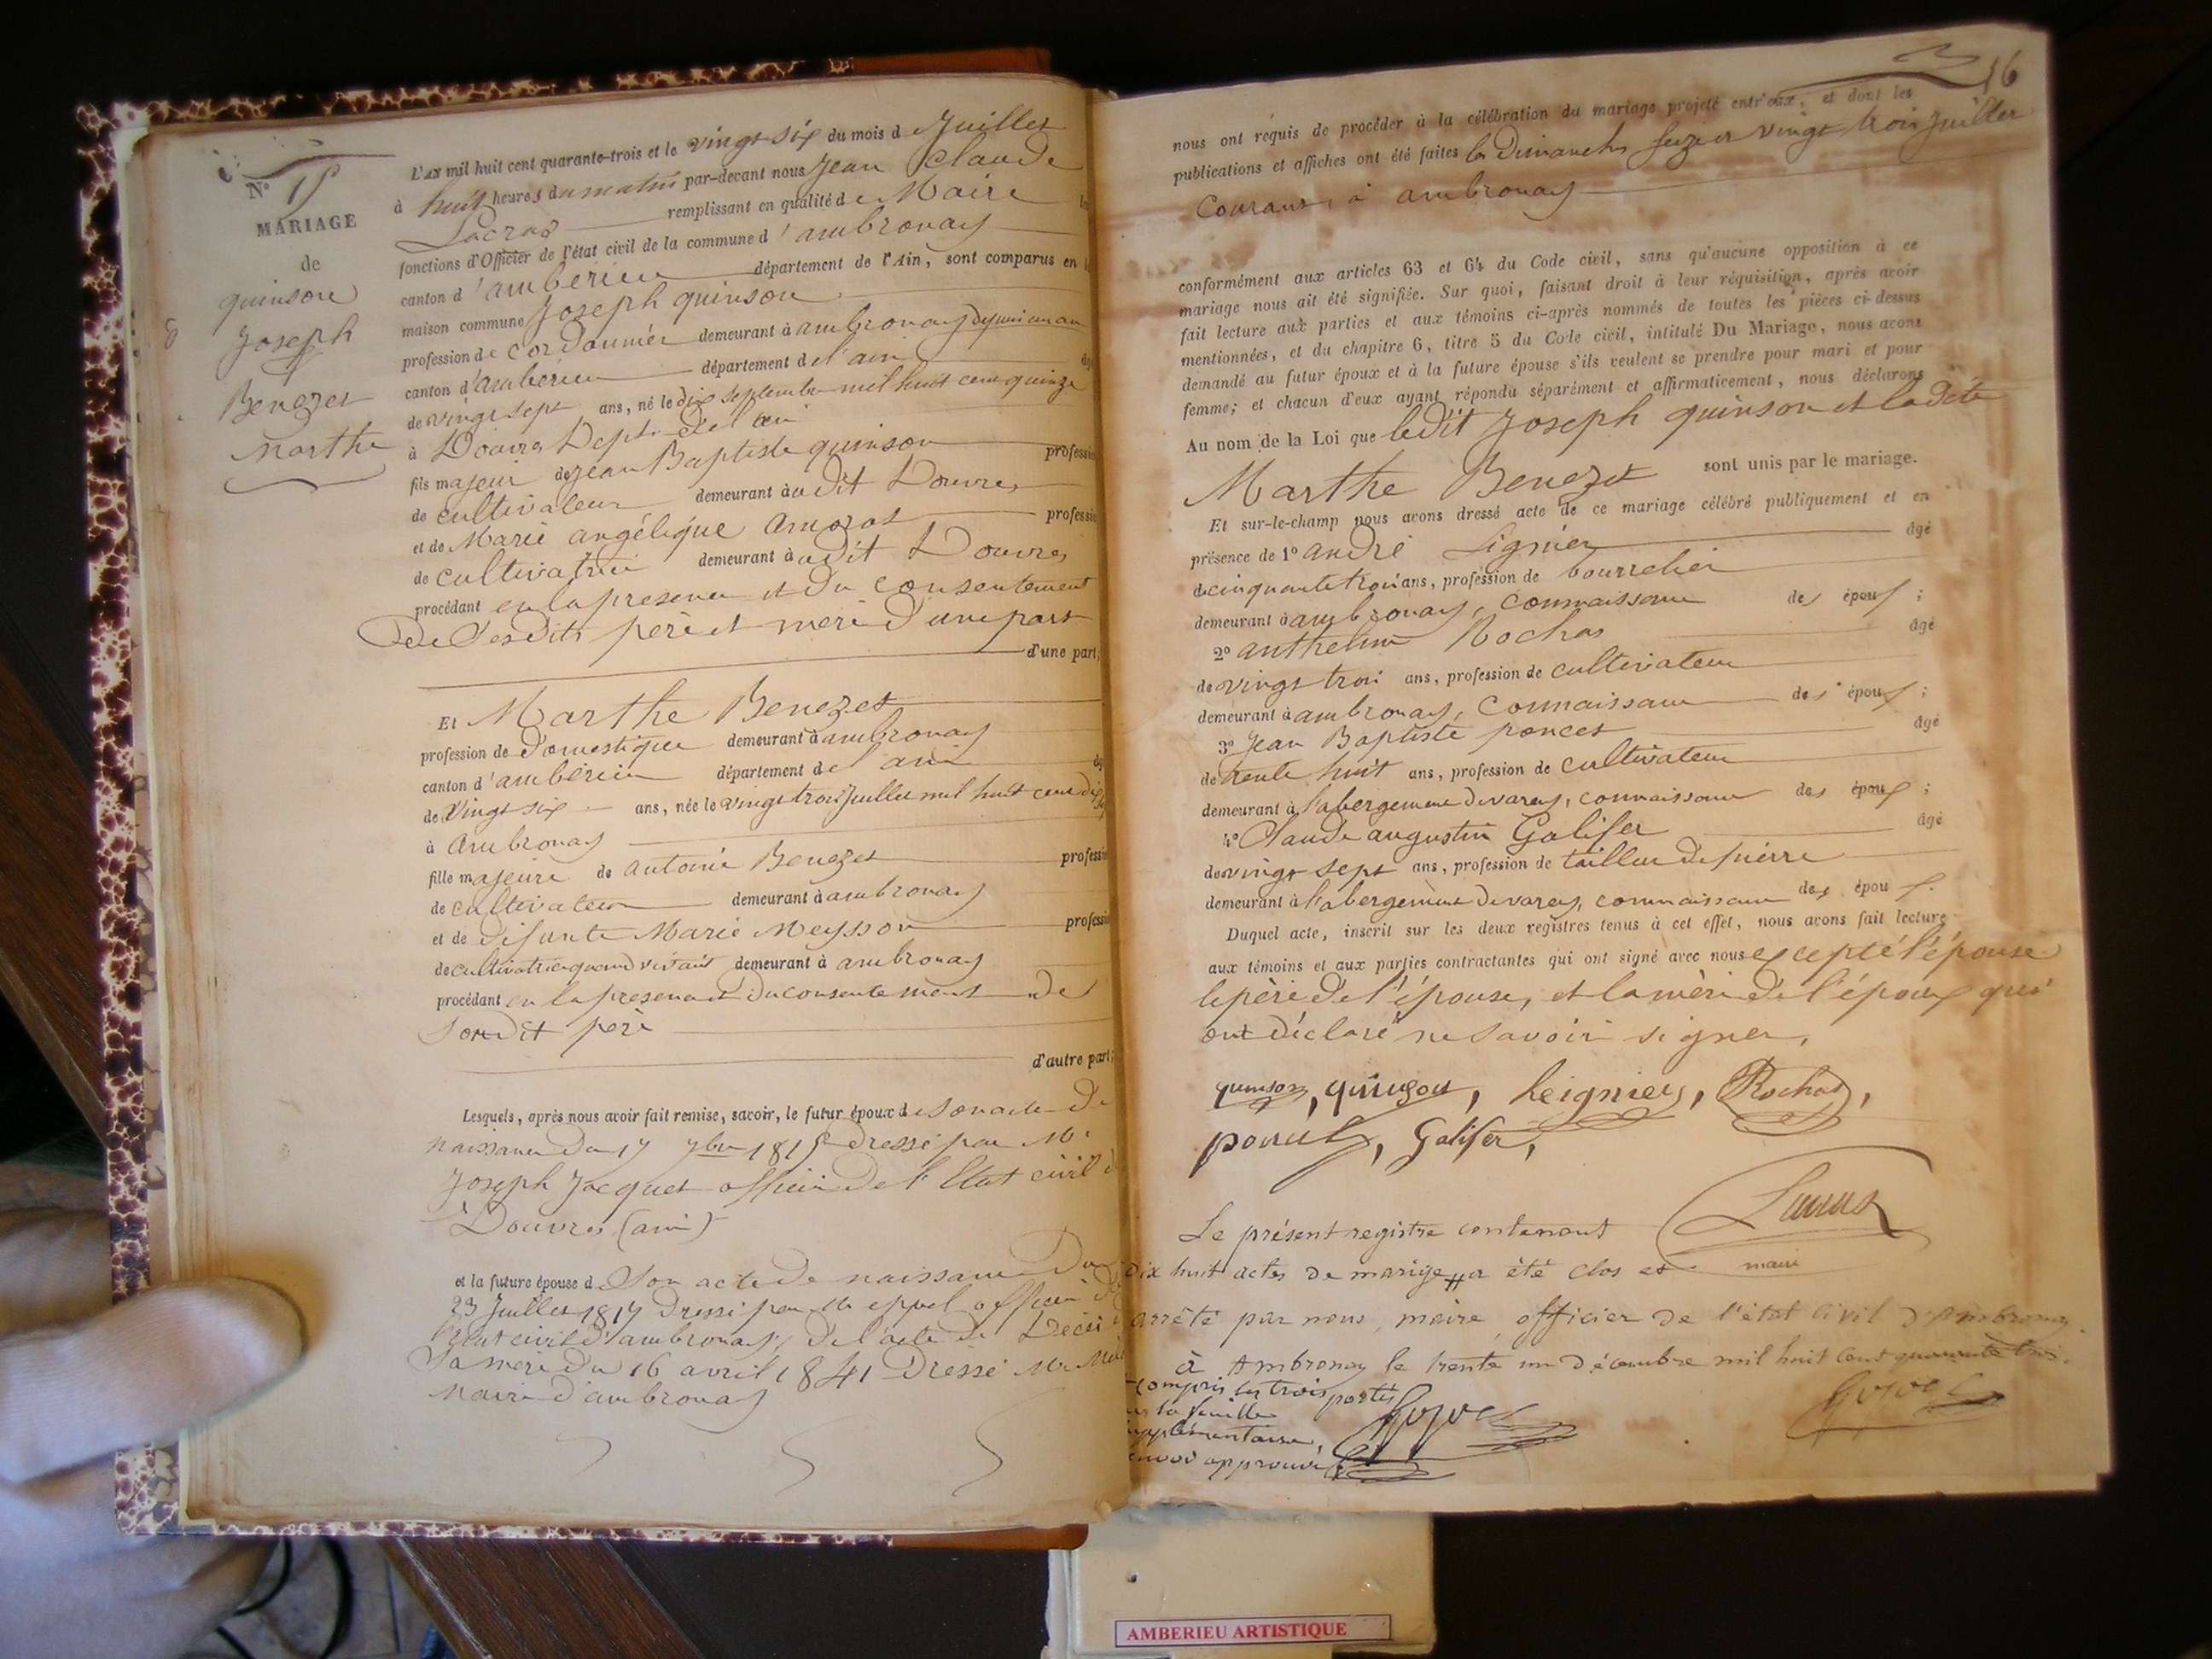 N° 15
MARIAGE
de
quinson
Joseph
&
Benezet
Marthe
L'AN mil huit cent quarante-trois et le vingt six du mois d Juillet
à huit heures du matin par-devant nous Jean Claude
remplissant en qualité de Maire
fonctions d'Officier de l'état civil de la commune d'ambronay
canton d'amberieu département de l'Ain, sont comparus en
maison commune Joseph quinson
profession de cordonnier demeurant à ambronay depuis un an
canton d'amberieu département de l'ain
de vingt sept ans, né le dix septembre mil huit cent quinze
à Douvres Dept. de l'ain
fils majeur de Jean Baptiste quinson profession
de cultivateur demeurant audit Douvres
et de Marie angélique profession
de cultivatrice demeurant audit Douvres
procédant en la presence et du consentement
de Sesdits père et mère d'une part
d'une part;
Et Marthe Benezet
profession de domestique demeurant à ambronay
canton d'amberieu département de l'ain
de Vingt six ans, née le vingt trois juillet mil huit cent dix
à Ambronay
fille majeure de antoine Benezet profession
de cultivateur demeurant à ambronay
et de défunte Marie Meysson profession
de cultivatrice quand vivait demeurant à ambronay
procédant en la presence et du consentement de
Sondit père
d'autre part;
Lesquels, après nous avoir fait remise, savoir, le futur époux de son acte de
naissance du 17 7bre 1815 dressé par Mr
Joseph Jacquet officier de l'Etat civil d
Douvres (ain)
et la future épouse d Son acte de naissance du
23 Juillet 1817 dressé par Mr officier de
l'Etat civil d'ambronay, de l'acte de Décès
Sa mère du 16 avril 1841 Dressé Mr
maire d'ambronay
16
nous ont requis de procéder à la célébration du mariage projeté entr'eux, et dont les
publications et affiches ont été faites les Dimanches seize et vingt trois juillet
Courant, à ambronay
conformément aux articles 63 et 64 du Code civil, sans qu'aucune opposition à ce
mariage nous ait été signifiée. Sur quoi, faisant droit à leur réquisition, après avoir
fait lecture aux parties et aux témoins ci-après nommés de toutes les pièces ci-dessus
mentionnées, et du chapitre 6, titre 5 du Code civil, intitulé Du Mariage, nous avons
demandé au futur époux et à la future épouse s'ils veulent se prendre pour mari et pour
femme; et chacun d'eux ayant répondu séparément et affirmativement, nous déclarons
Au nom de la Loi que ledit Joseph quinson et ladite
Marthe Benezet sont unis par le mariage.
Et sur-le-champ nous avons dressé acte de ce mariage célébré publiquement et en
présence de 1° andré Lignier âgé
de cinquante trois ans, profession de bourrelier
demeurant à ambronay, connaissance des époux;
2° anthelme Rochas âgé
de vingt trois ans, profession de cultivateur
demeurant à ambronay, connaissance des époux;
3° Jean Baptiste poncet âgé
de trente huit ans, profession de cultivateur
demeurant à l'abergement de varey, connaissance des époux;
4° Claude augustin Galifer âgé
de vingt sept ans, profession de tailleur de pierre
demeurant à l'abergement de varey, connaissance des époux.
Duquel acte, inscrit sur les deux registres tenus à cet effet, nous avons fait lecture
aux témoins et aux parties contractantes qui ont signé avec nous excepté l'épouse
le père de l'épouse, et la mère de l'époux qui
ont déclaré ne savoir signer,
quinson, quinson, Leignier, Rochas,
poncet, Galifer,
maire
Le présent registre contenant
dix huit actes de mariage a été clos et
arrêté par nous, maire officier de l'état civil d'Ambronay
à Ambronay le trente un Décembre mil huit cent quarante trois.
compris les trois portés
sur la feuille
supplémentaire,
renvoi approuvé
AMBERIEU ARTISTIQUE